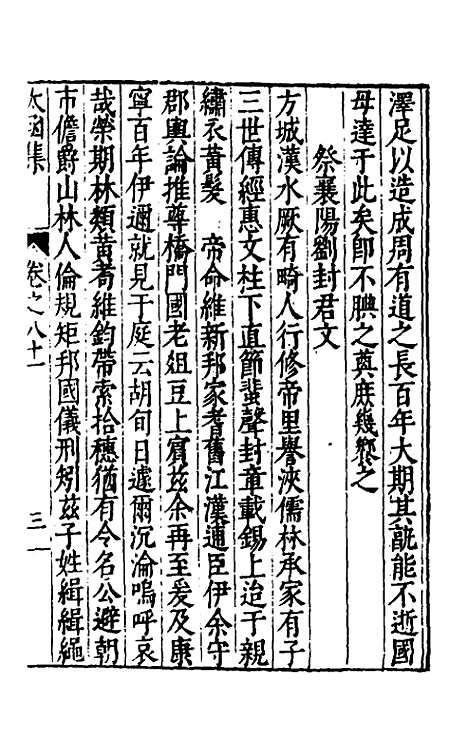 澤足以造成周有道之長百年大期其孰能不逝國
母達于此矣卽不腆之奠庶幾饗之
祭襄陽劉封君文
方城漢水厥有畸人行修帝里譽浹儒林承家有子
三世傳經惠文柱下直節蜚聲封章載錫上迨于親
繡衣黃髮　帝命維新邦家耆舊江漢逋臣伊余守
郡輿論推尊橋門國老俎豆上賓茲余再至爰及康
寧百年伊邇就見于庭云胡旬日遽爾沉淪嗚呼哀
哉榮期林類黃耇維鈞帶索拾穗猶有令名公避朝
市儋爵山林人倫規矩邦國儀刑矧茲子姓緝緝繩
太函集　卷之八十一　三